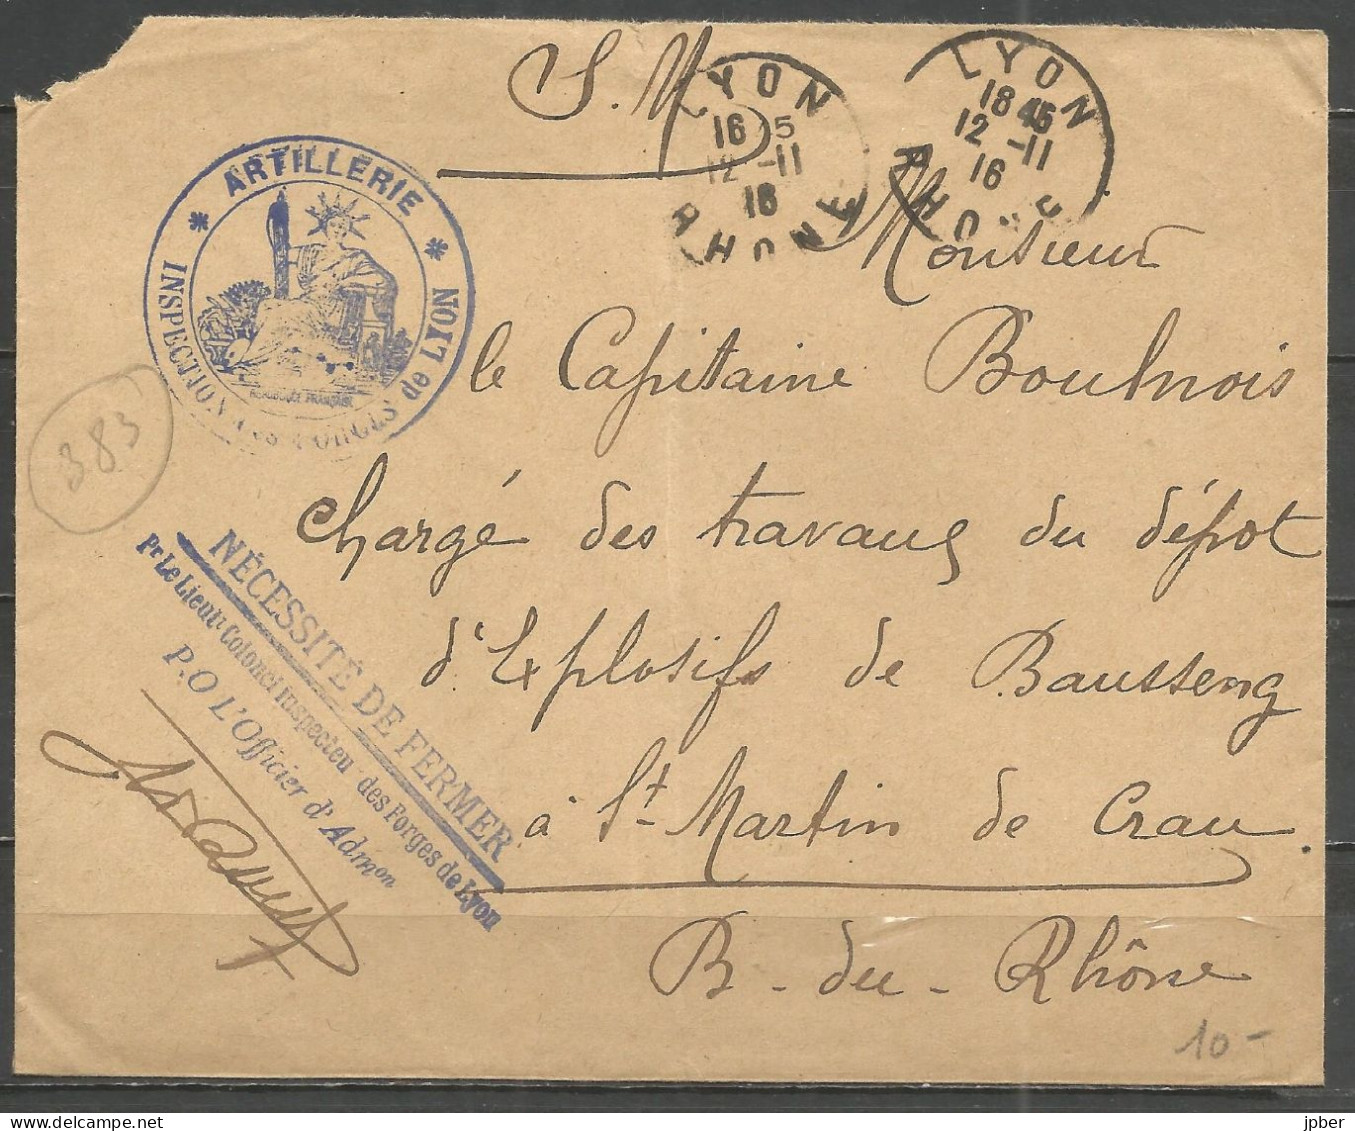 S. M.
LYON
16 5
12 -11
16
RHONE
LYON
18 45
12 -11
16
RHONE
* ARTILLERIE *
INSPECTION des FORGES de LYON
REPUBLIQUE FRANÇAISE
383
Monsieur
le Capitaine Boulnois
chargé des travaux du dépôt
d'Explosifs de Baussenq
à St Martin de Crau
B - du - Rhône
NÉCESSITÉ DE FERMER
Pr Le Lieut Colonel Inspecteu des Forges de Lyon
P.O L'Officier d'Admon
10 -
jpber